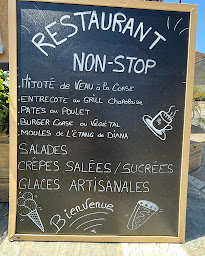 RESTAURANT
NON-STOP
.MIJOTÉ de VEAU à la CORSE
.ENTRECOTE au GRILL Charolaise
.PATES au POULET
.BURGER CORSE ou VÉGÉTAL
.MOULES de L'ÉTANG de DIANA
SALADES
CRÊPES SALÉES / SUCRÉES
GLACES ARTISANALES
Bienvenue